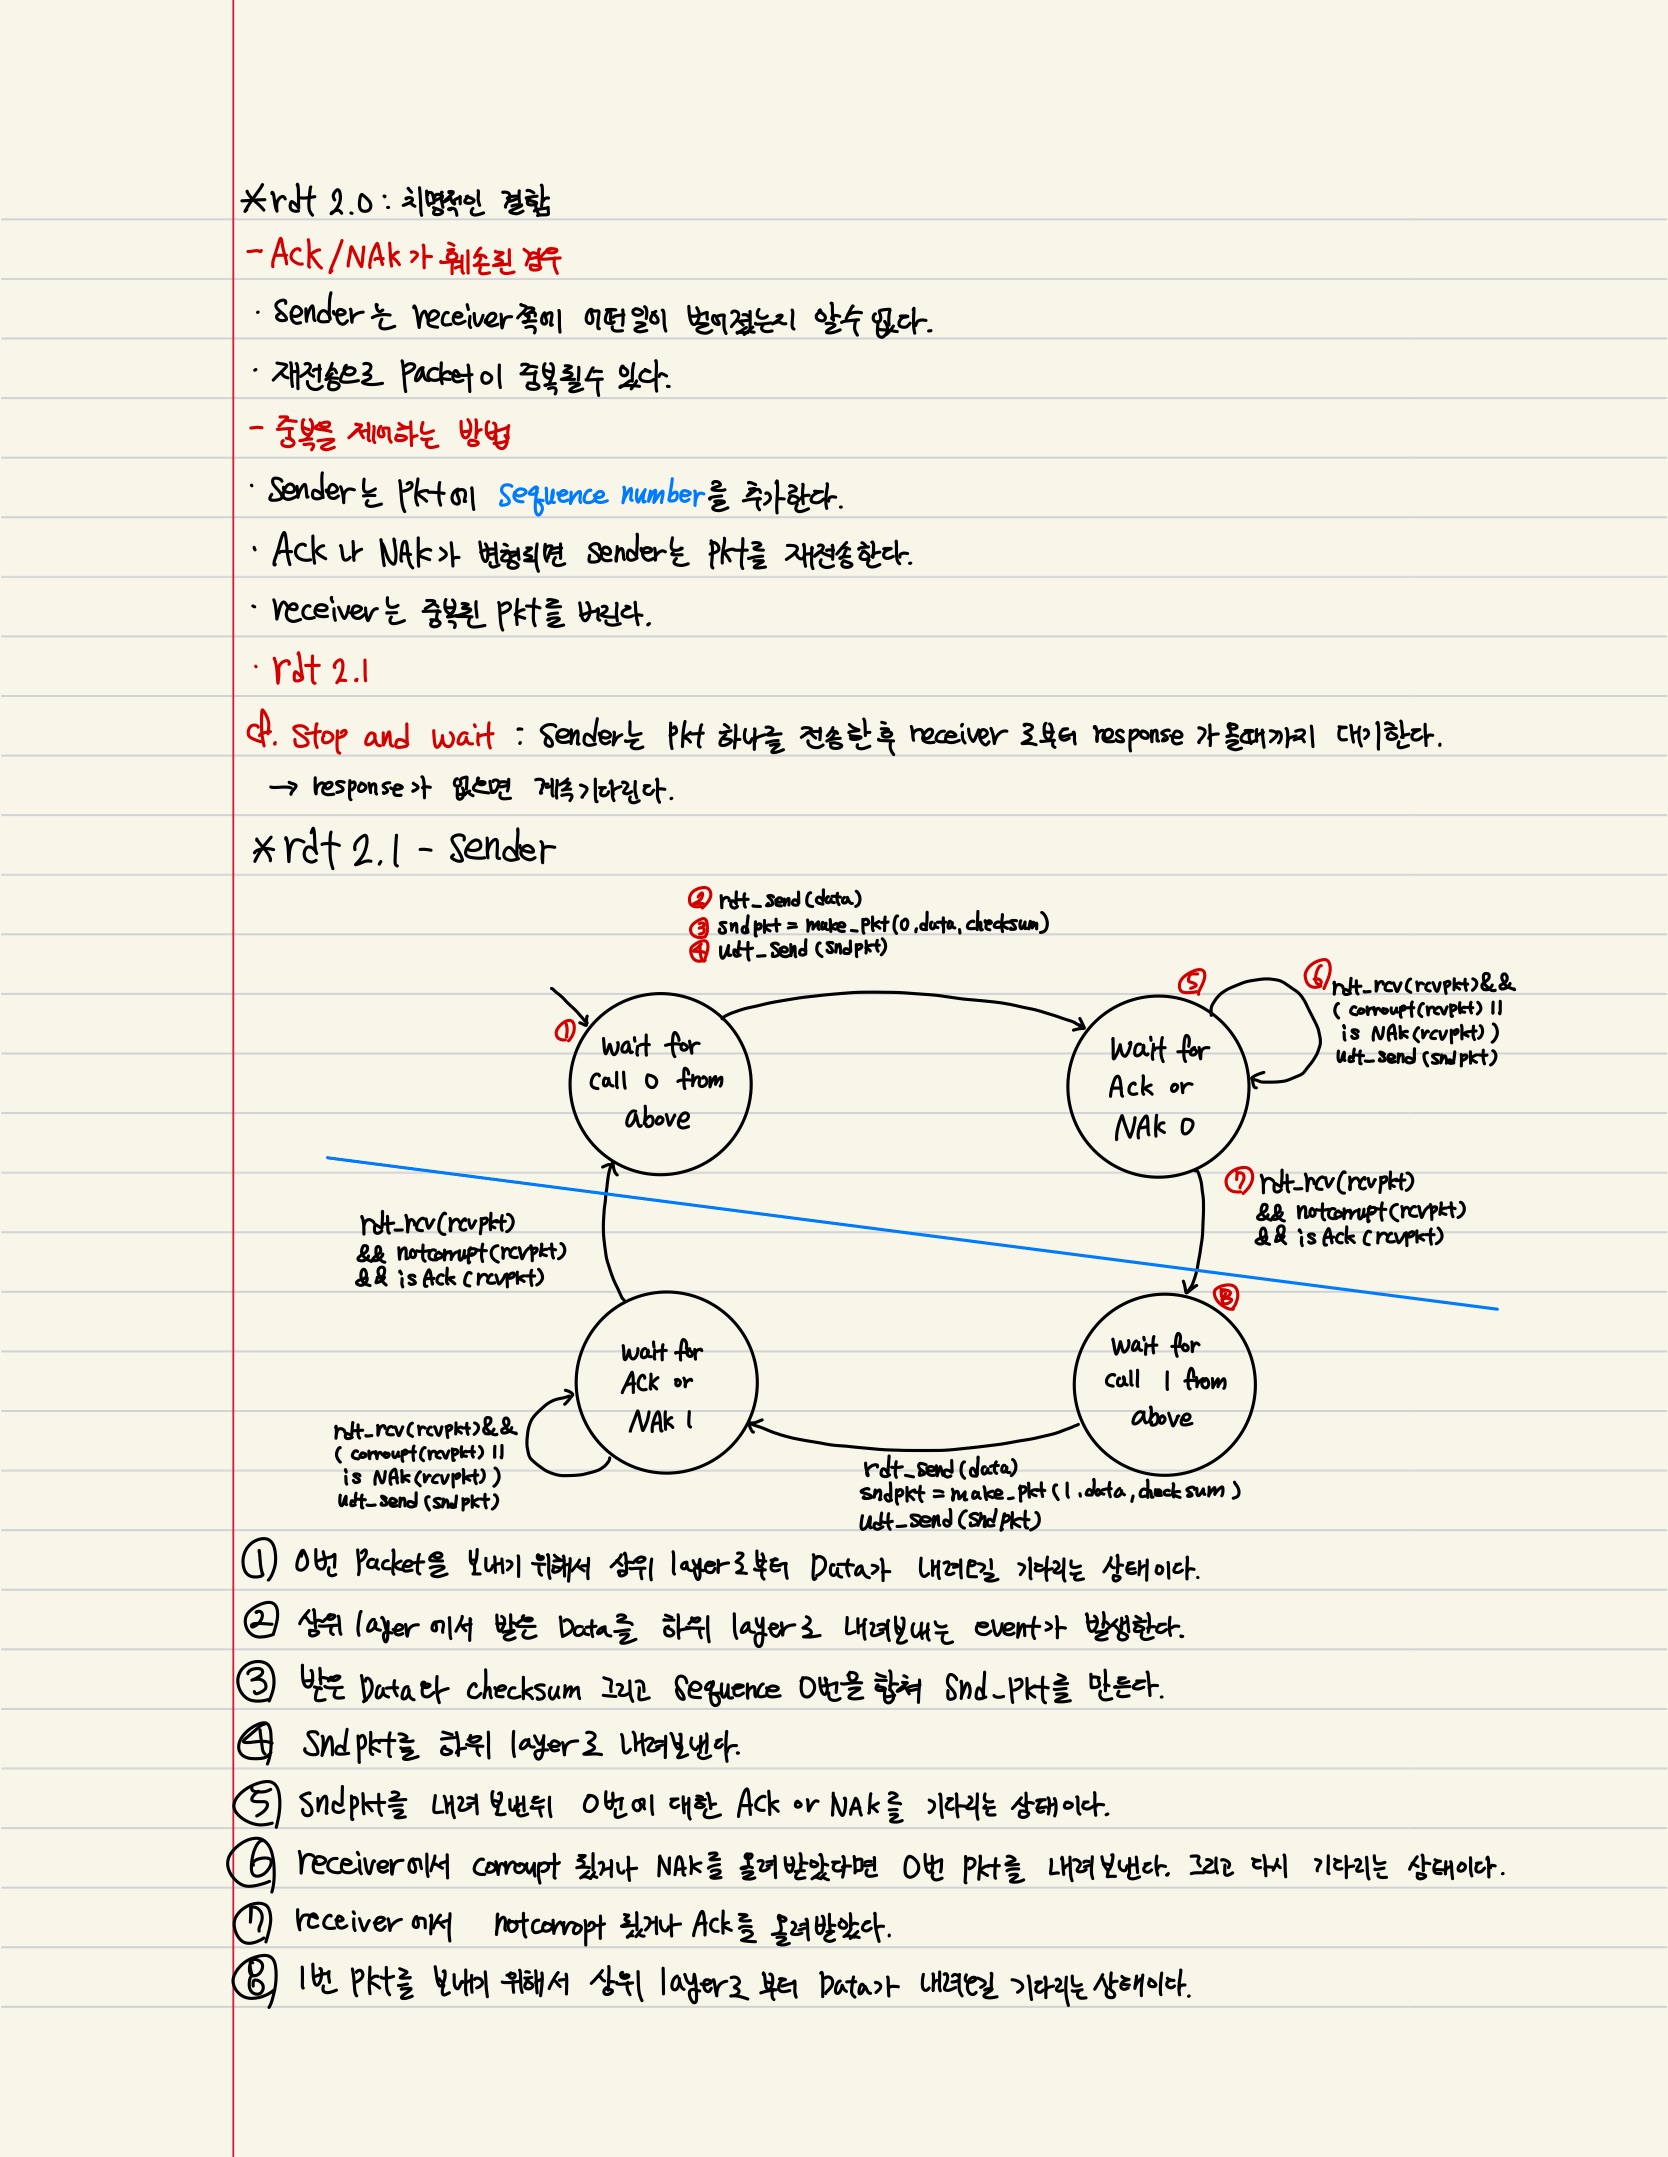 *rdt 2.0 : 치명적인 결함
- Ack/NAk가 훼손된 경우
· Sender는 receiver쪽에 어떤일이 벌어졌는지 알수 없다.
· 재전송으로 Packet이 중복될수 있다.
- 중복을 제어하는 방법
· Sender는 Pkt에 sequence number를 추가한다.
· Ack 나 NAk가 변형되면 sender는 pkt를 재전송한다.
· receiver는 중복된 pkt를 버린다.
· rdt 2.1
cf. Stop and wait : Sender는 Pkt 하나를 전송한후 receiver 로부터 response 가 올때까지 대기한다.
→ response가 없으면 계속 기다린다.
*rdt 2.1 - Sender
② rdt_send(data)
③ sndpkt = make_pkt(0,data,checksum)
④ udt_send(sndpkt)
①
Wait for
call 0 from
above
⑤
Wait for
Ack or
NAk 0
⑥ rdt_rcv(rcvpkt)&&
( corroupt(rcvpkt) ||
is NAk(rcvpkt) )
udt_send(sndpkt)
⑦ rdt_rcv(rcvpkt)
&& notcorrupt(rcvpkt)
&& is Ack (rcvpkt)
rdt_rcv(rcvpkt)
&& notcorrupt(rcvpkt)
&& is Ack (rcvpkt)
⑧
Wait for
call 1 from
above
Wait for
ACK or
NAk 1
rdt_rcv(rcvpkt)&&
( corroupt(rcvpkt) ||
is NAk(rcvpkt) )
udt_send(sndpkt)
rdt_send(data)
sndpkt = make_pkt(1.data,checksum)
udt_send(sndpkt)
① 0번 Packet을 보내기 위해서 상위 layer로부터 Data가 내려오길 기다리는 상태이다.
② 상위 layer에서 받은 Data를 하위 layer로 내려보내는 event가 발생한다.
③ 받은 Data와 checksum 그리고 Sequence 0번을 합쳐 Snd_pkt를 만든다.
④ Sndpkt를 하위 layer로 내려보낸다.
⑤ Sndpkt를 내려 보낸뒤 0번에 대한 Ack or NAk를 기다리는 상태이다.
⑥ receiver에서 corroupt 됬거나 NAk를 올려받았다면 0번 pkt를 내려보낸다. 그리고 다시 기다리는 상태이다.
⑦ receiver에서 notcorropt 됬거나 Ack를 올려받았다.
⑧ 1번 pkt를 보내기 위해서 상위 layer로 부터 Data가 내려오길 기다리는 상태이다.